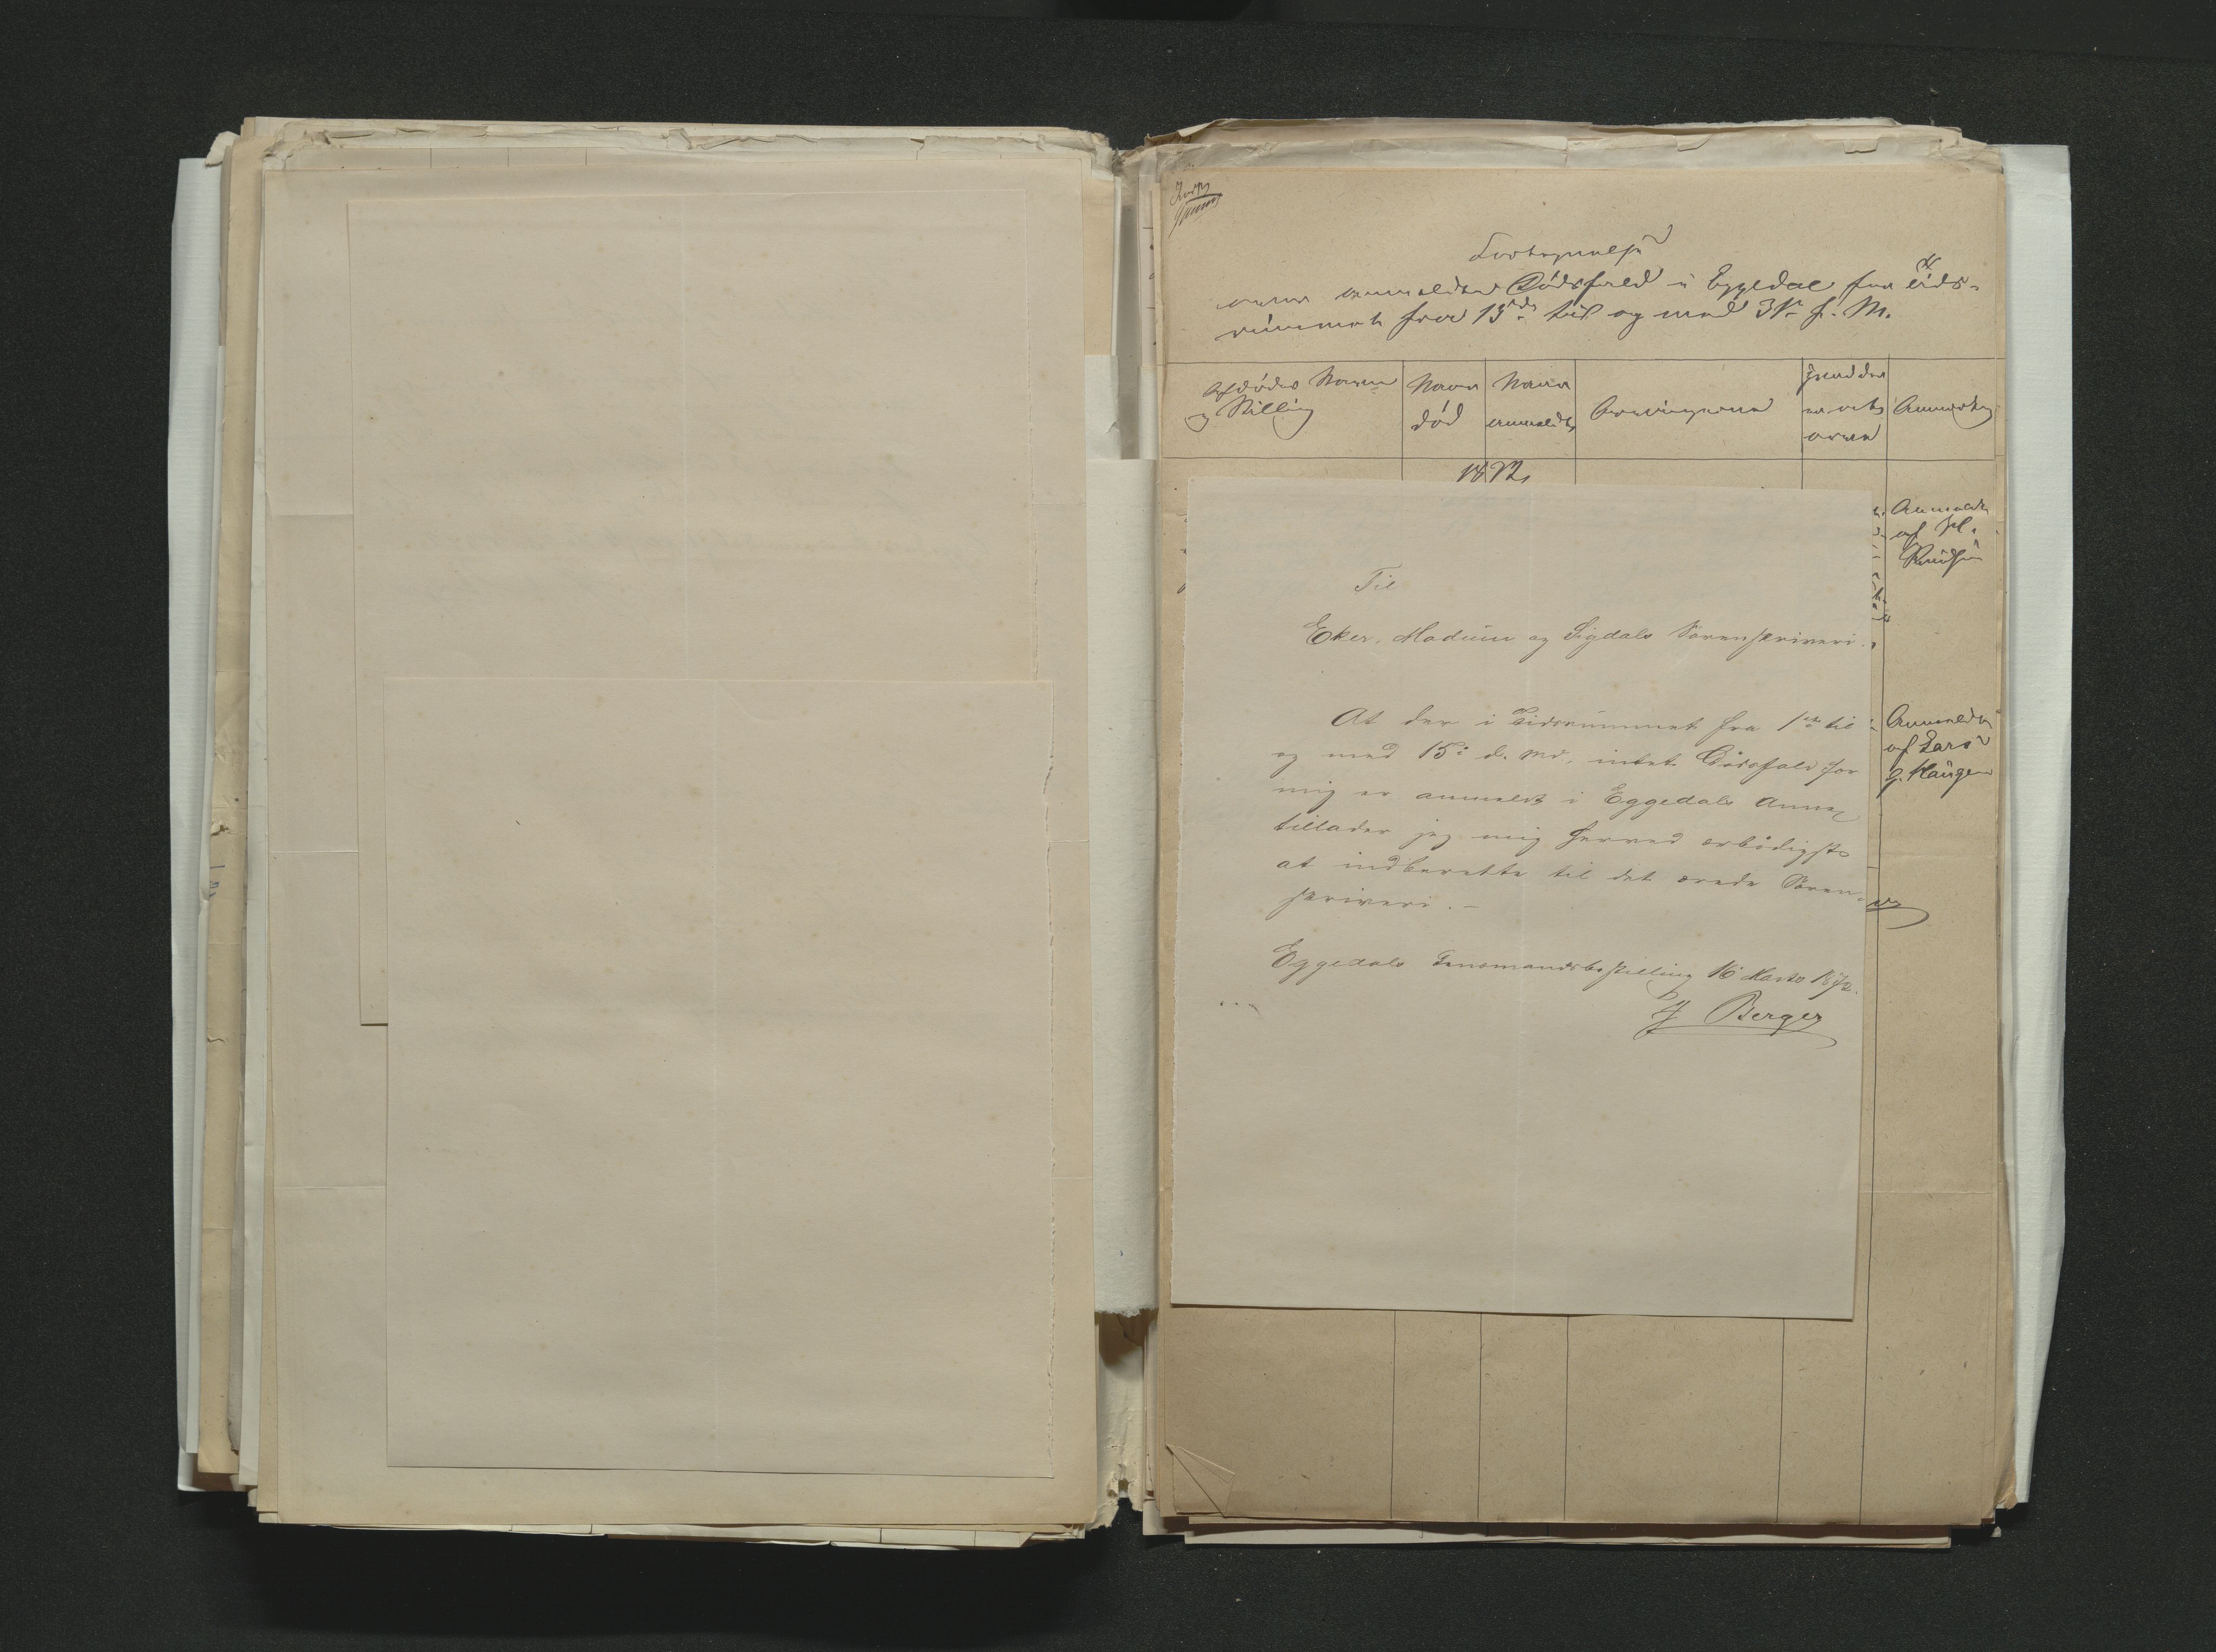 Fortegnelse
over anmeldte Dødsfald i Eggedal for Tids-
rummet fra 15de til og med 31te f. M.
Afdødes Navn
og Stilling
Naar
død
Naar
anmeldt
Arvingerne
Anmærkng
1872
Anmeldt
af H.
Knudsen
Anmeldt
af Lars
Haugen
Til
Eker, Modum og Sigdals Sorenskriveri.
At der i Tidsrummet fra 1ste til
og med 15de d. Md. intet Dødsfald for
mig er anmeldt i Eggedals Annex
tillader jeg mig herved ærbødigst
at indberette til det ærede Soren-
skriveri. -
Eggedals Lensmandsbestilling 16 Marts 1872.
Berger